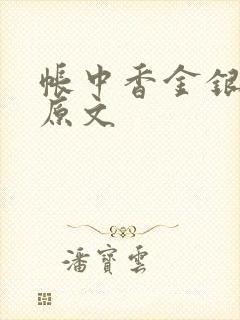 帳中香金銀
原文
潘寶雲